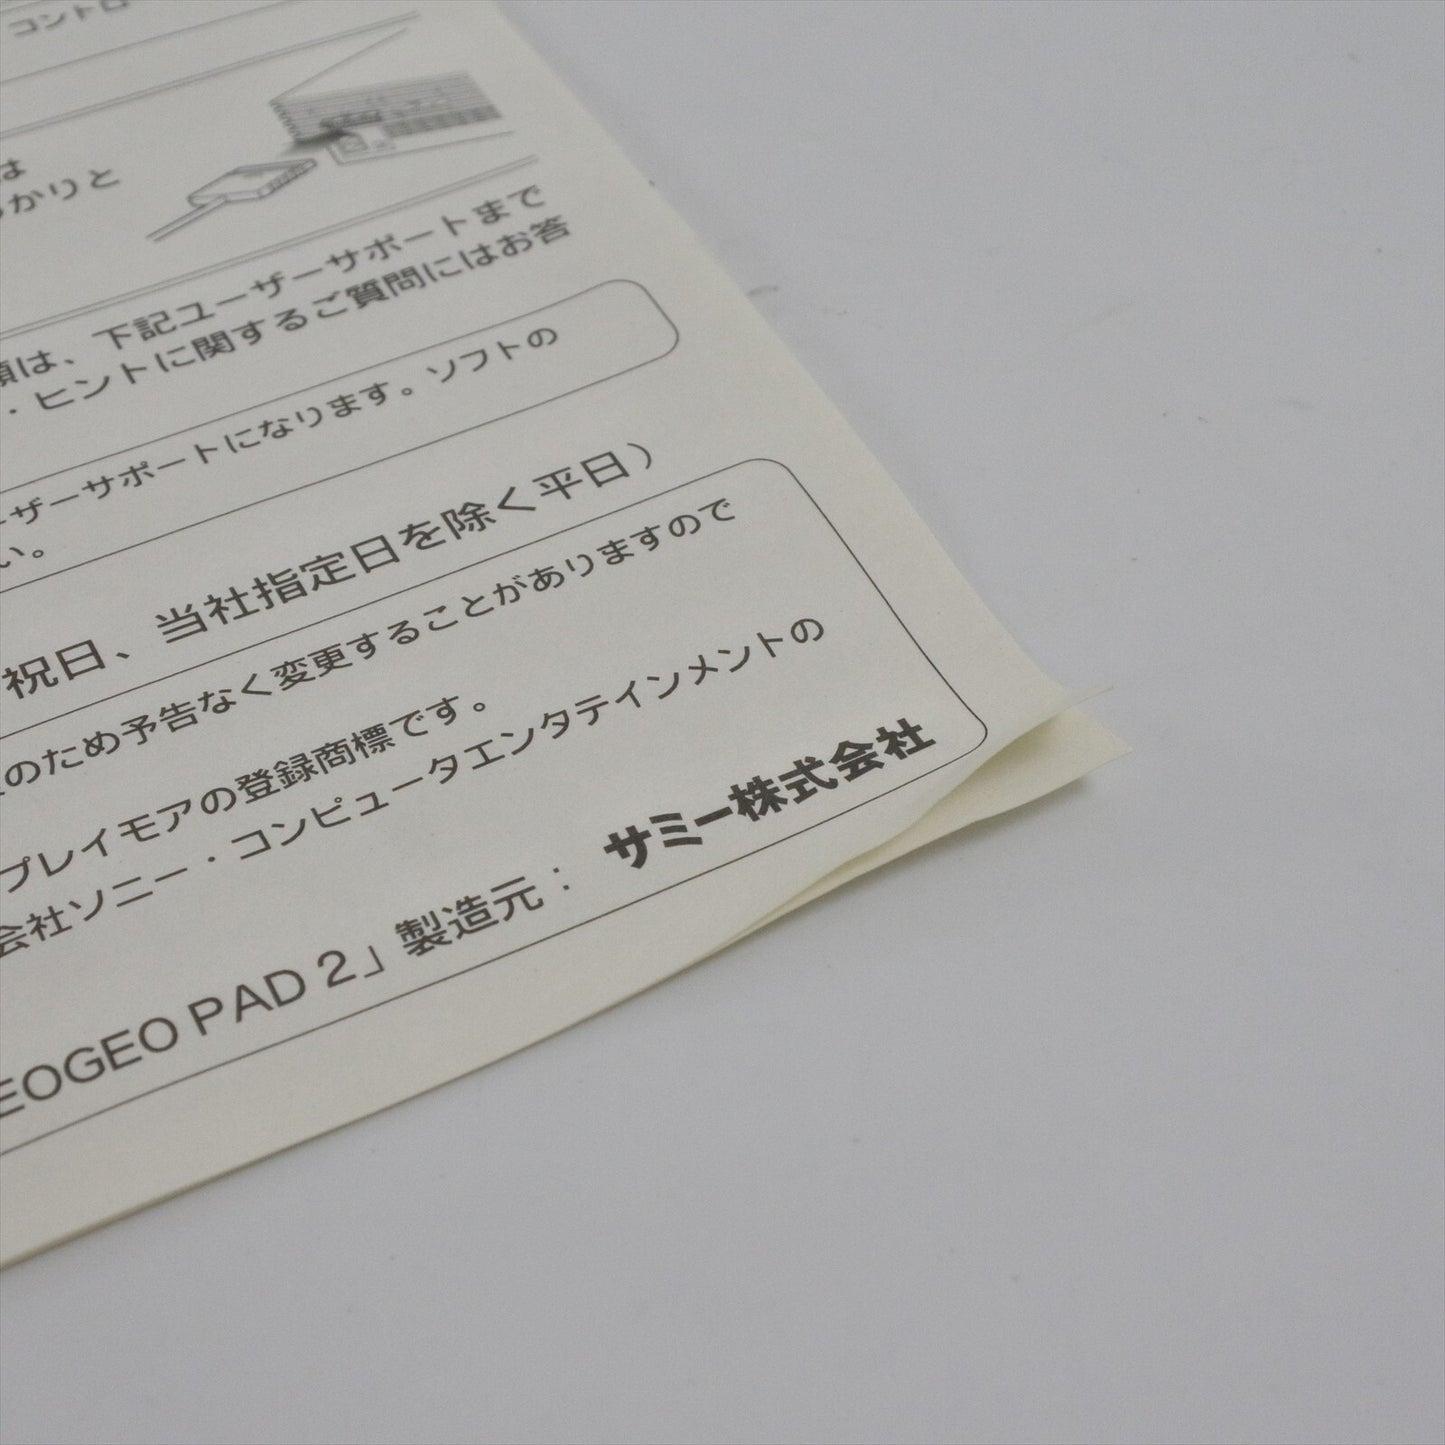 コントロ
は
かりと
は、下記ユーザーサポートまで
・ヒントに関するご質問にはお答
ーザーサポートになります。ソフトの
い。
祝日、当社指定日を除く平日）
のため予告なく変更することがありますので
プレイモアの登録商標です。
会社ソニー・コンピュータエンタテインメントの
EOGEO PAD 2」製造元： サミー株式会社